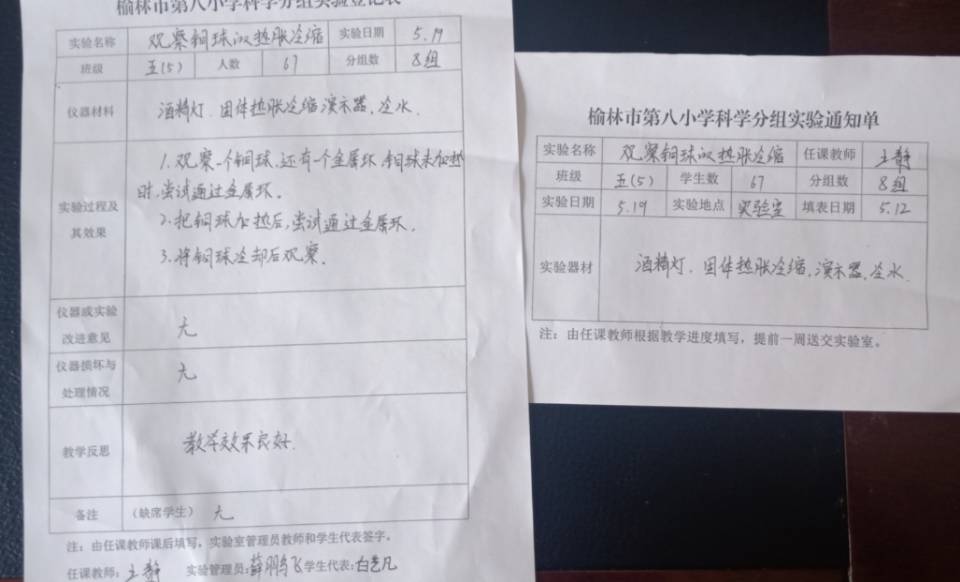 榆林市第八小学科学分组实验登记表
实验名称 观察铜球的热胀冷缩 实验日期 5.19
班级 五(5) 人数 67 分组数 8组
仪器材料 酒精灯.固体热胀冷缩演示器、冷水.
实验过程及其效果
1.观察一个铜球,还有一个金属环,铜球未加热
时,尝试通过金属环。
2.把铜球加热后,尝试通过金属环.
3.将铜球冷却后观察.
仪器或实验改进意见 无
仪器损坏与处理情况 无
教学反思 教学效果良好.
备注 (缺席学生) 无
注:由任课教师课后填写,实验室管理员教师和学生代表签字。
任课教师:王静 实验管理员:薛鹏飞 学生代表:白艺凡
榆林市第八小学科学分组实验通知单
实验名称 观察铜球的热胀冷缩 任课教师 王静
班级 五(5) 学生数 67 分组数 8组
实验日期 5.19 实验地点 实验室 填表日期 5.12
实验器材 酒精灯.固体热胀冷缩,演示器、冷水.
注:由任课教师根据教学进度填写,提前一周送交实验室。